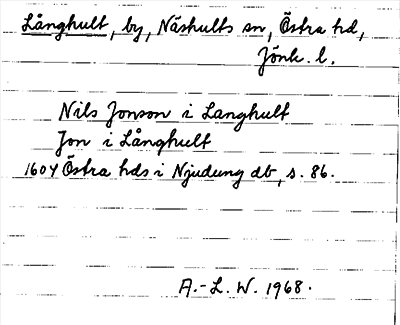 Långhult, by, Näshults sn, Östra hd,
Jönk. l.
Nils Jonson i Langhult
Jon i Långhult
1604 Östra hds i Njudung db, s. 86.
A.-L. W. 1968.